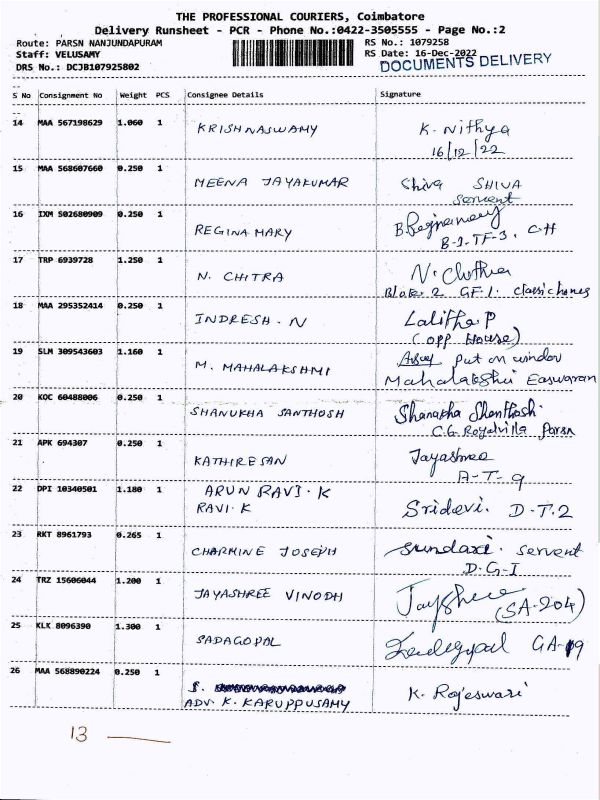 THE PROFESSIONAL COURIERS, Coimbatore
Delivery Runsheet - PCR - Phone No.:0422-3505555 - Page No.:2
Route: PARSN NANJUNDAPURAM RS No.: 1079258
Staff: VELUSAMY RS Date: 16-Dec-2022
DRS No.: DCJB107925802 DOCUMENTS DELIVERY
S No Consignment No Weight PCS Consignee Details Signature
14 MAA 567198629 1.060 1 KRISHNASWAMY K. Nithya
16/12/22
15 MAA 568607660 0.250 1 MEENA JAYAKUMAR Shiva SHIVA
servent
16 IXM 502680909 0.250 1 REGINA MARY B. Reginamary
B-1-TF-3. C-H
17 TRP 6939728 1.250 1 N. CHITRA N. Chithra
Block 2 GF-1. classic homes
18 MAA 295352414 0.250 1 INDRESH. N Lalitha P
(opp House)
19 SLM 309543603 1.160 1 M. MAHALAKSHMI put on window
Mahalakshmi Easwaran
20 KQC 60488006 0.250 1 SHANUKHA SANTHOSH Shanukha Shanthosh
C.G. Royalvilla Parsn
21 APK 694307 0.250 1 KATHIRESAN Jayashree
A-T-9
22 DPI 10340501 1.180 1 ARUN RAVI. K
RAVI. K Sridevi. D-T.2
23 RKT 8961793 0.265 1 CHARMINE JOSEPH Sundari. servent
D-G-I
24 TRZ 15606044 1.200 1 JAYASHREE VINODH Jayshree (SA-204)
25 KLK 8096390 1.300 1 SADAGOPAL Sadagopal GA-19
26 MAA 568890224 0.250 1 S. K. Rajeswari
ADV. K. KARUPPUSAMY
13